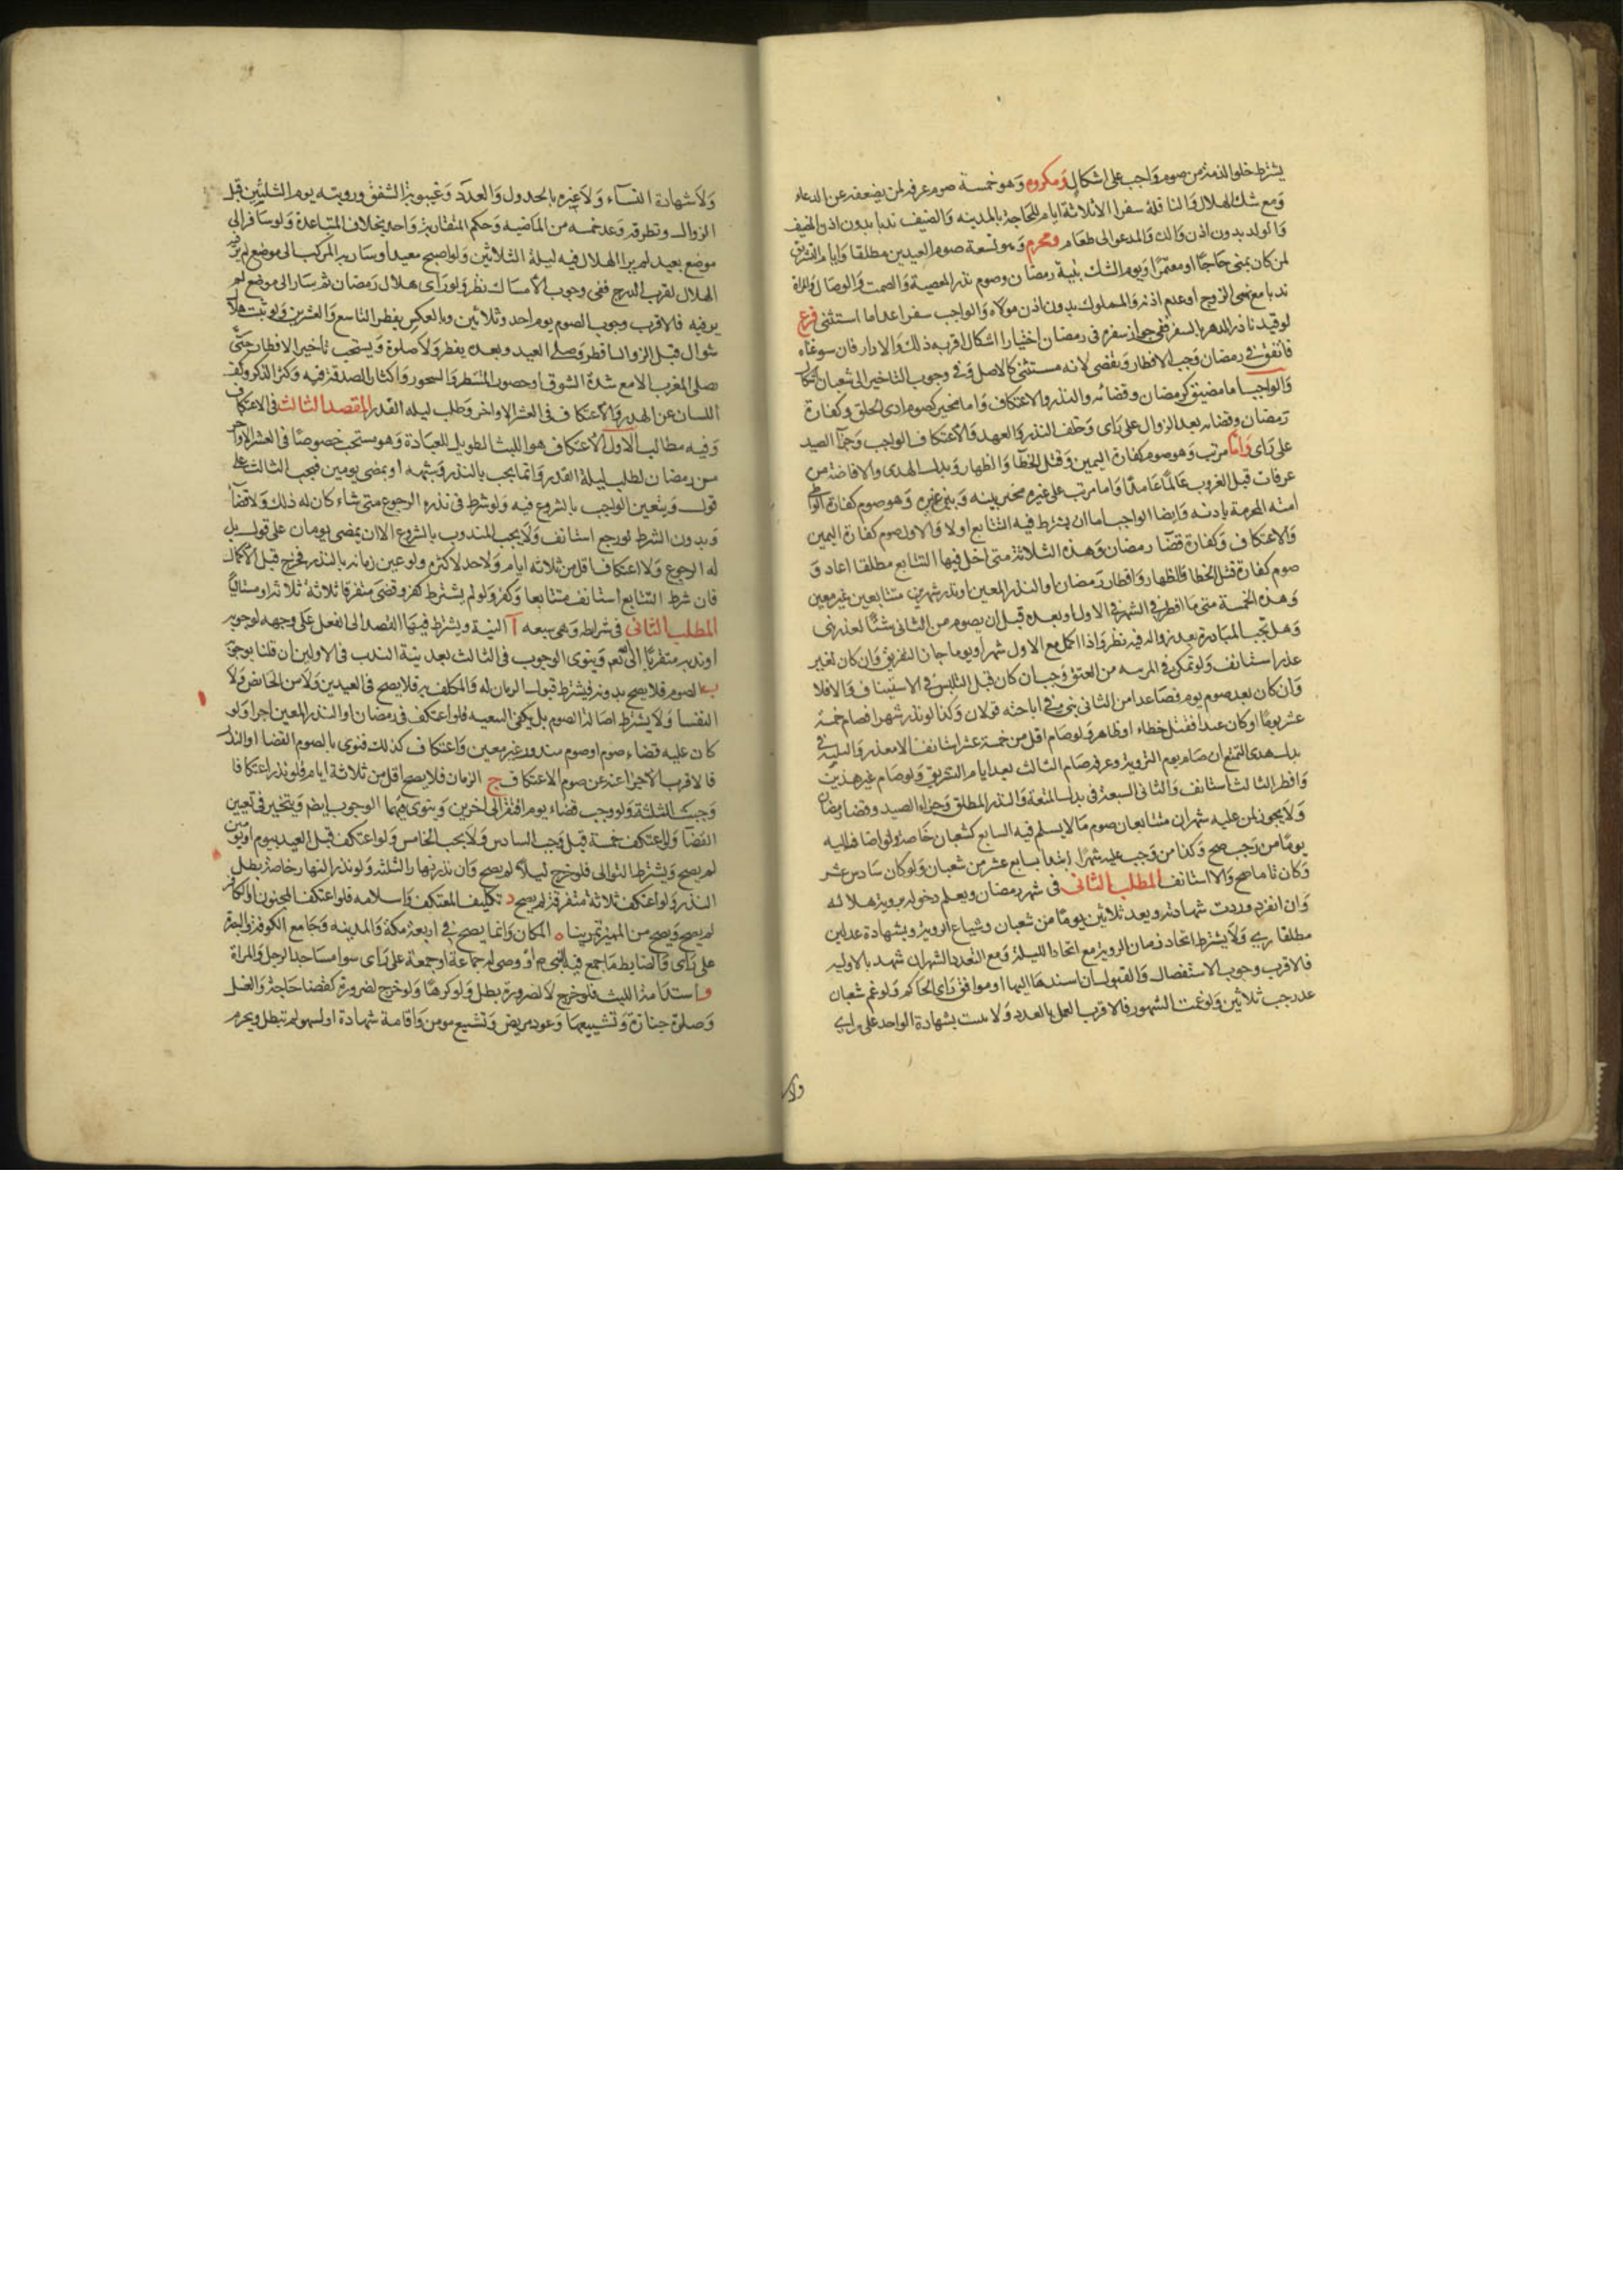 يشترط خلو الذمة من صوم واجب على اشكال ومكروه وهو خمسة صوم عرفه لمن يضعفه عن الدعاء
ومع شك الهلال والنافلة سفرا الا ثلاثة ايام للحاجة بالمدينه والضيف ندبا بدون اذن المضيف
والولد بدون اذن والده والمدعو الى طعام ومحرم وهو تسعة صوم العيدين مطلقا وايام التشريق
لمن كان بمنى حاجا او معتمرا ويوم الشك بنية رمضان وصوم نذر المعصية والصمت والوصال والمراة
ندبا مع نهى الزوج او عدم اذنه والمملوك بدون اذن مولاه والواجب سفرا عدا ما استثنى فرع
لو قيد ناذر الدهر بالسفر ففى جواز سفره فى رمضان اختيارا اشكال اقربه ذلك والا دار فان سوغناه
فاتفق فى رمضان وجب الافطار ويقضى لانه مستثنى كالاصل وفى وجوب التاخير الى شعبان اشكال
والواجب اما مضيق كرمضان وقضائه والنذر والاعتكاف واما مخير كصوم اذى الحلق وكفارة
رمضان وقضائه بعد الزوال على راى وخلف النذر والعهد والاعتكاف الواجب وجزآ الصيد
على راى واما مرتب وهو صوم كفارة اليمين وقتل الخطآ والظهار وبدل الهدى والافاضة من
عرفات قبل الغروب عالما عامدا واما مرتب على غيره مخير بينه وبين غيره وهو صوم كفارة الواطى
امته المحرمة باذنه وايضا الواجب اما ان يشترط فيه التتابع اولا والاول صوم كفارة اليمين
والاعتكاف وكفارة قضآ رمضان وهذه الثلاثة متى اخل فيها التتابع مطلقا اعاد و
صوم كفارة قتل الخطا والظهار وافطار رمضان او النذر المعين او نذر شهرين متتابعين غير معين
وهذه الخمسة متى ما افطر فى الشهر الاول او بعده قبل ان يصوم من الثانى شيئا لعذر بنى
وهل تجب المبادرة بعد زواله فيه نظر واذا اكمل مع الاول شهرا ويوما جاز التفريق وان كان لغير
عذر استانف ولو تمكن فى المرتبه من العتق وجب ان كان قبل التلبس فى الاستيناف والافلا
وان كان بعد صوم يوم فصاعدا من الثانى بنى وفى اباحته قولان وكذا لو نذر شهرا فصام خمسة
عشر يوما او كان عبدا فقتل خطاء او ظاهر ولو صام اقل من خمسة عشر استانف الا مع العذر والثلاثة فى
بدل هدى التمتع ان صام يوم التروية وعرفه صام الثالث بعد ايام التشريق ولو صام غير هذين
وافطر الثالث استانف والثانى السبعة فى بدل المتعة والنذر المطلق وجزاء الصيد وقضا رمضان
ولا يجوز لمن عليه شهران متتابعان صوم مالا يسلم فيه السابع كشعبان خاصة ولو اضاف اليه
يوما من رجب صح وكذا من وجب عليه شهر اذا ابتدا بسابع عشر من شعبان ولو كان سادس عشر
وكان تاما صح والا استانف المطلب الثانى فى شهر رمضان ويعلم دخوله بروية هلاله
وان انفرد وردت شهادته وبعد ثلاثين يوما من شعبان وشياع الروية وبشهادة عدلين
مطلقا راى ولا يشترط اتحاد زمان الروية مع اتحاد الليلة ومع التعدد الشهران شهد بالاوليه
فالاقرب وجوب الاستفصال والقبول ان اسندها اليها او موافق راى الحاكم ولو غم شعبان
عد رجب ثلاثين ولو غمت الشهور فالاقرب العمل بالعدد ولا يثبت بشهادة الواحد على راى
ولا
ولا شهادة النسآء ولا غيره بالجدول والعدد وغيبوبة الشفق ورويته يوم الثلثين قبل
الزوال وتطوقه وعد خمسه من الماضيه وحكم المتقاربة واحد بخلاف المتباعدة ولو سافر الى
موضع بعيد لم ير الهلال فيه ليلة الثلاثين ولو اصبح معيدا وسار به المركب الى موضع لم ير فيه
الهلال لقرب الدرج ففى وجوب الامساك نظر ولو راى هلال رمضان ثم سار الى موضع لم
ير فيه فالاقرب وجوب الصوم يوم احد وثلاثين وبالعكس يفطر التاسع والعشرين ولو ثبت هلال
شوال قبل الزوال افطر وصلى العيد وبعده يفطر ولا صلوة ويستحب تاخير الافطار حتى
يصلى المغرب الا مع شدة الشوق او حضور المنتظر والسحور واكثار الصدقة فيه وكثرة الذكر وكف
اللسان عن الهذر والاعتكاف فى العشر الاواخر وطلب ليله القدر المقصد الثالث فى الاعتكاف
وفيه مطالب الاول الاعتكاف هو اللبث الطويل للعبادة وهو مستحب خصوصا فى العشر الاواخر
من رمضان لطلب ليلة القدر وانما يجب بالنذر وشبهه او بمضى يومين فيجب الثالث على
قول ويتعين الواجب بالشروع فيه ولو شرط فى نذره الرجوع متى شاء كان له ذلك ولا قضآء
وبدون الشرط لو رجع استانف ولا يجب المندوب بالشروع الا ان يمضى يومان على قول بل
له الرجوع ولا اعتكاف اقل من ثلاثه ايام ولا حد لاكثره ولو عين زمانه بالنذر فخرج قبل الاكمال
فان شرط التتابع استانف متتابعا وكفر ولو لم يشترط كفر وقضى متفرقا ثلاثة ثلاثة او متتاليا
المطلب الثانى فى شرايطه وهى سبعه آ النية ويشترط فيها القصد الى الفعل على وجهه لوجوبه
او ندبه متقربا الى الله تعم وينوى الوجوب فى الثالث بعد نية الندب فى الاولين ان قلنا بوجوبه
ب الصوم فلا يصح بدونه فيشترط قبول الزمان له والمكلف به فلا يصح فى العيدين ولا من الحائض ولا
النفسا ولا يشترط اصالة الصوم بل يكفى التبعيه فلو اعتكف فى رمضان او النذر المعين اجزا ولو
كان عليه قضاء صوم او صوم منذور غير معين واعتكاف كذلك فنوى بالصوم القضا او النذر
فالاقرب الاجزا عنه عن صوم الاعتكاف ج الزمان فلا يصح اقل من ثلاثة ايام فلو نذر اعتكافا
وجبت الثلثة ولو وجب قضاء يوم افتقر الى اخرين وينوى فيهما الوجوب ايضم ويتخير فى تعيين
القضآ ولو اعتكف خمسة قيل وجب السادس ولا يجب الخامس ولو اعتكف قبل العيد بيوم او يومين
لم يصح ويشترط التوالى فلو خرج ليلا لم يصح وان نذر نهارا الثلثه ولو نذر النهار خاصة بطل
النذر ولو اعتكف ثلاثة متفرقة لم يصح د تكليف المعتكف واسلامه فلو اعتكف المجنون او الكافر
لم يصح ويصح من المميز تمرينا ه المكان وانما يصح فى اربعة مكة والمدينه وجامع الكوفة والبصرة
على راى والضابط ما جمع فيه النبى م او وصى له جماعة او جمعة على راى سوا مساحد الرجل والمراة
و استدامة اللبث فلو خرج لا لضرورة بطل ولو كرها ولو خرج لضرورة كقضا حاجة والغسل
وصلوة جنازة وتشييعها وعود مريض وتشيع مومن واقامة شهادة او لسهو لم تبطل ويحرم